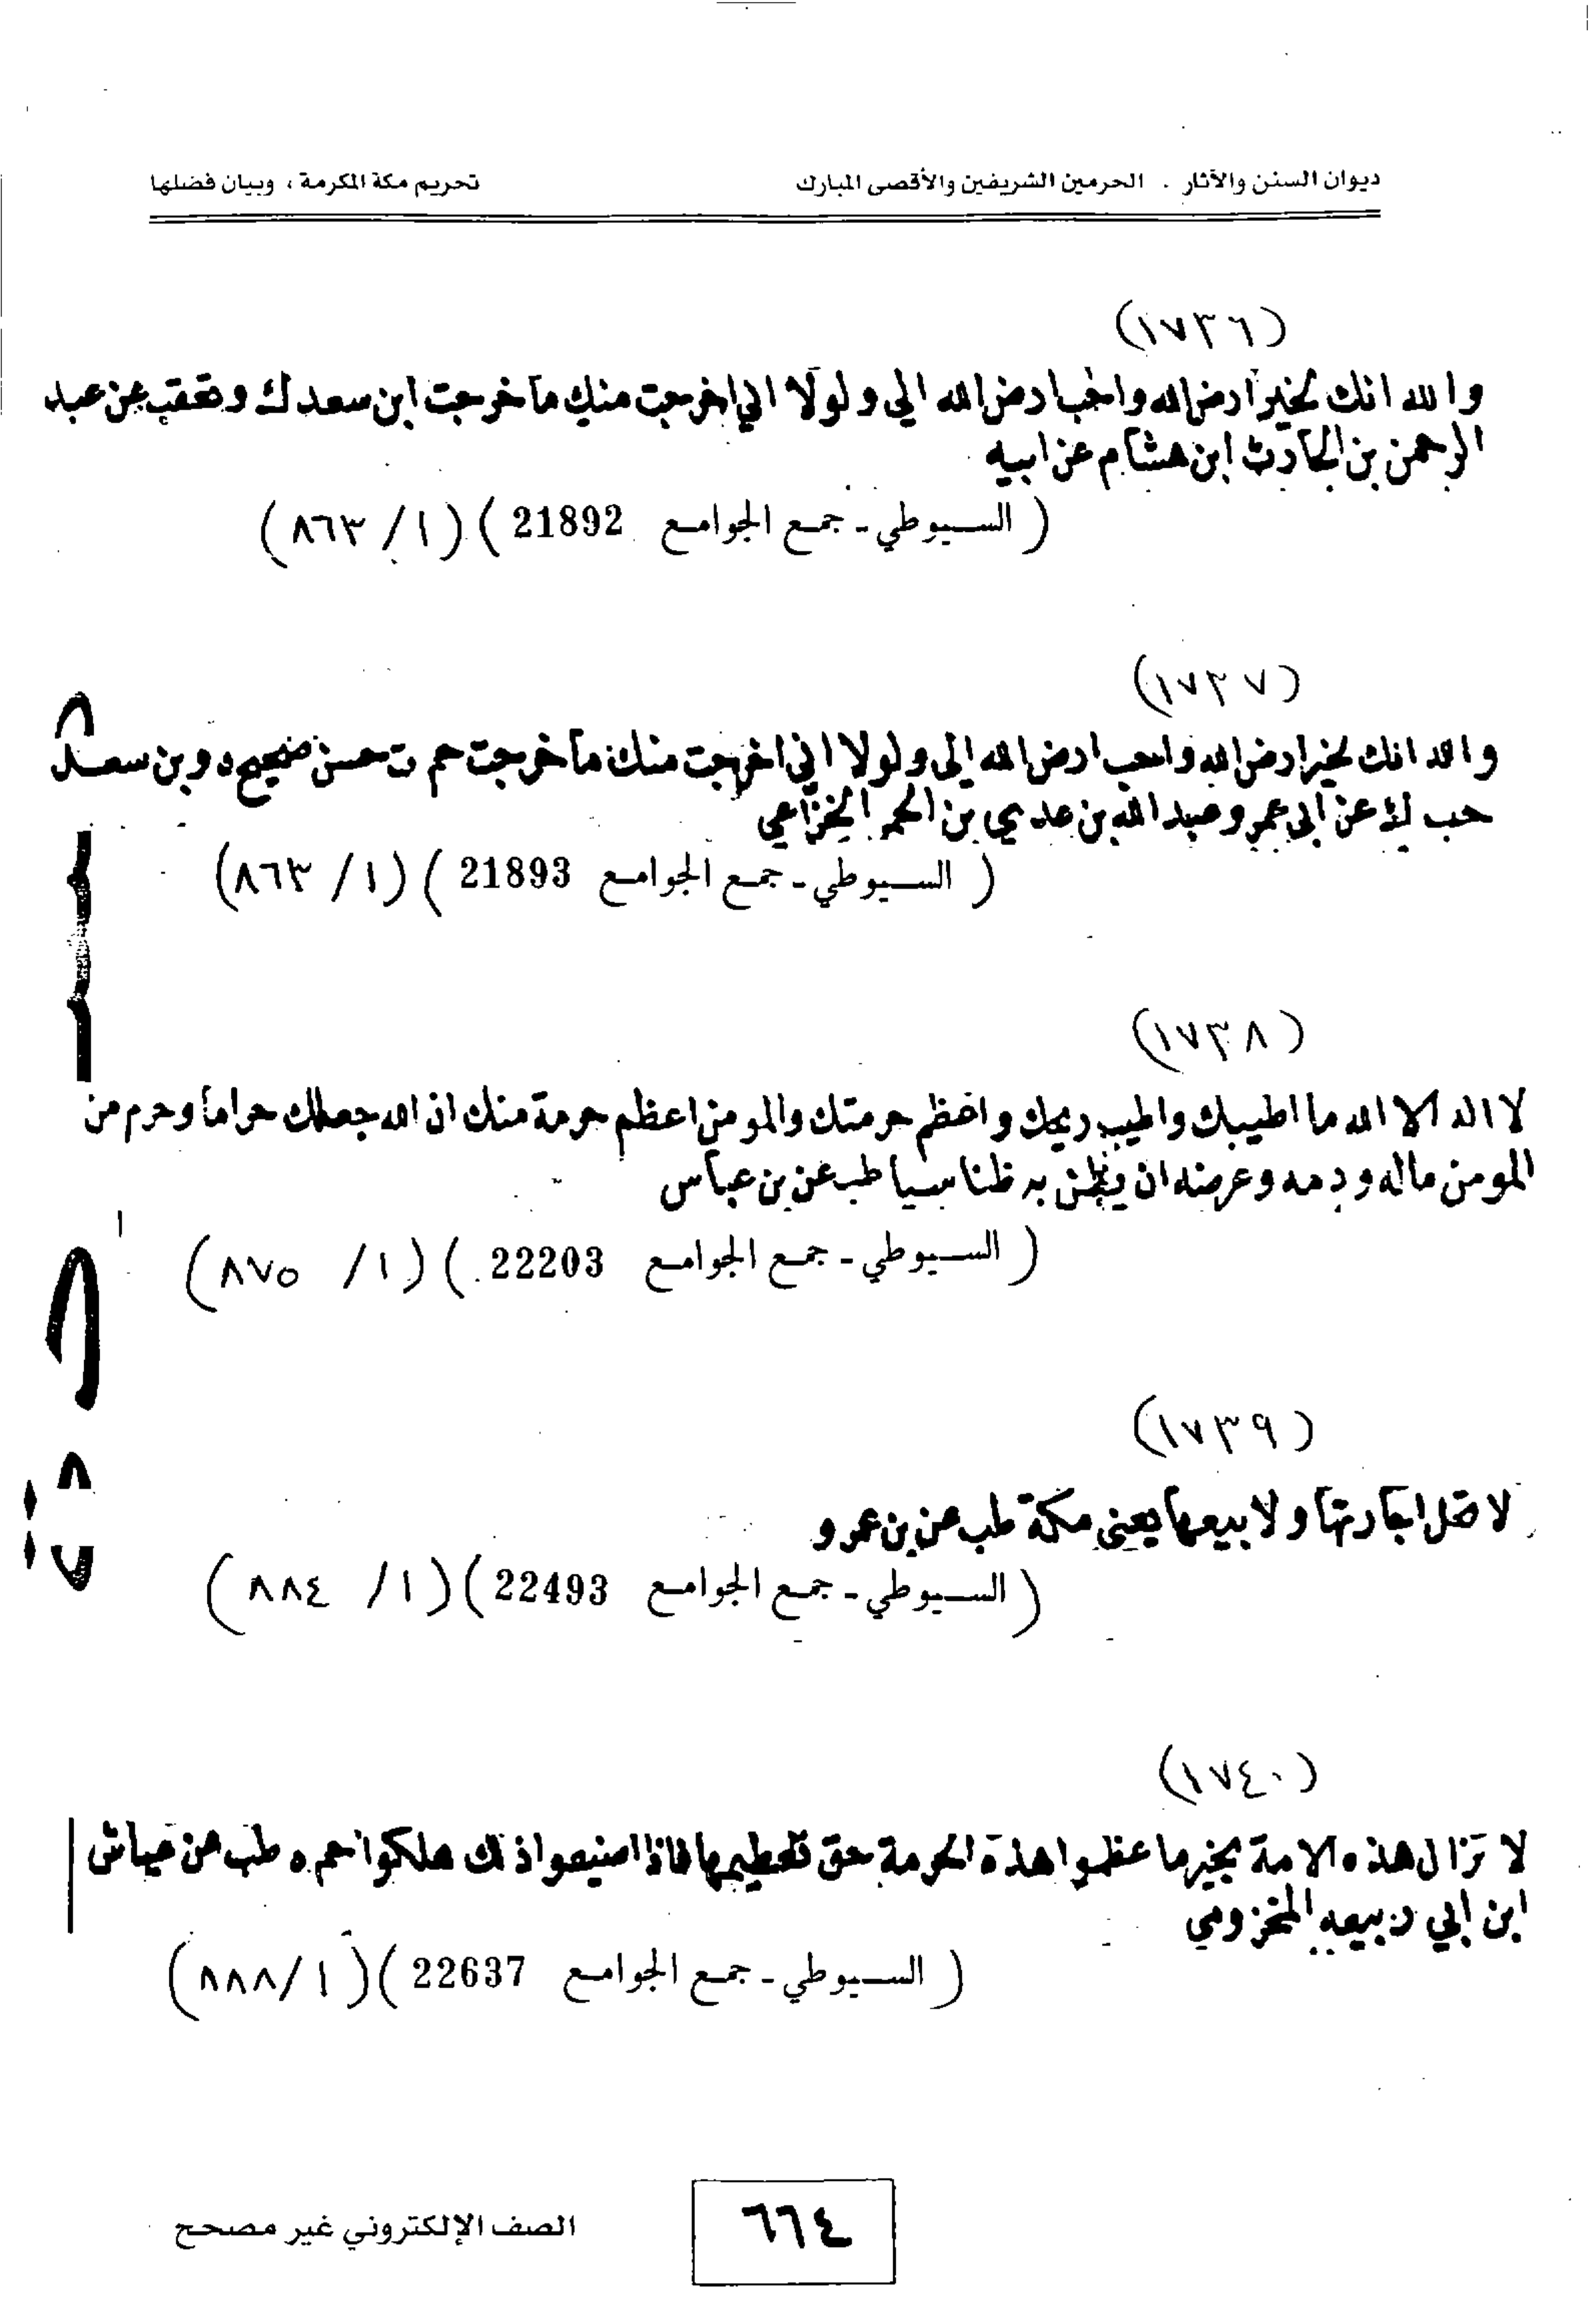 ديوان السنن والآثار . الحرمين الشريفين والأقصى المبارك تحريم مكة المكرمة ، وبيان فضلها
(١٧٣٦)
والله انك لخير ارض الله واحب ارض الله الى ولولا اني اخرجت منك ما خرجت ابن سعد ك وتعقب عن عبد
الرحمن بن الحارث ابن هشام عن ابيه
( السيوطي - جمع الجوامع 21892 ) (١ / ٨٦٣)
(١٧٣٧)
والله انك لخير ارض الله واحب ارض الله الى ولولا اني اخرجت منك ما خرجت حم ت حسن صحيح ه وبن سعد
حب ك عن ابى عمرو عبد الله بن عدي بن الحمر الخزاعي
( السيوطي - جمع الجوامع 21893 ) (١ / ٨٦٣)
(١٧٣٨)
لا اله الا الله ما اطيبك واطيب ريحك واعظم حرمتك والمومن اعظم حرمة منك ان الله جعلك حراما وحرم من
المومن ماله ودمه وعرضه ان يظن به ظنا سيا طب عن بن عباس
( السيوطي - جمع الجوامع 22203 ) (١ / ٨٧٥)
(١٧٣٩)
لا تحل اجارتها ولا بيعها يعنى مكة طب عن بن عمرو
( السيوطي - جمع الجوامع 22493 ) (١ / ٨٨٤)
(١٧٤٠)
لا تزال هذه الامة بخير ما عظموا هذه الحرمة حق تعظيمها فاذا ضيعوا ذلك هلكوا حم ه طب عن عياش
ابن ابي ربيعه المخزومي
( السيوطي - جمع الجوامع 22637 ) (١ / ٨٨٨)
٦٦٤
الصف الإلكتروني غير مصحح